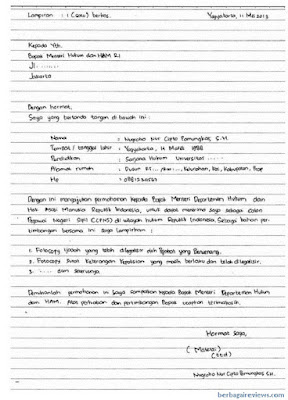 Lampiran : 1 (satu) berkas. Yogyakarta, 11 Mei 2013
Kepada Yth.
Bapak Menteri Hukum dan HAM RI
Jl. .......
Jakarta
Dengan hormat,
Saya yang bertanda tangan di bawah ini :
Nama : Nugroho Nur Cipto Pamungkas S.H.
Tempat / tanggal lahir : Yogyakarta, 14 Maret
Pendidikan : Sarjana Hukum Universitas .....
Alamat rumah : Dusun RT.../RW..., Kelurahan, Kec, Kabupaten, Prop
Hp :
Dengan ini mengajukan permohonan kepada Bapak Menteri Departemen Hukum dan
Hak Asasi Manusia Republik Indonesia, untuk dapat menerima saya sebagai Calon
Pegawai Negeri Sipil (CPNS) di wilayah hukum Republik Indonesia. Sebagai bahan per-
timbangan bersama ini saya lampirkan :
1. Fotocopy Ijazah yang telah dilegalisir oleh Pejabat yang Berwenang.
2. Fotocopy Surat Keterangan Kepolisian yang masih berlaku dan telah dilegalisir.
3. ..... dan seterusnya.
Demikianlah permohonan ini saya sampaikan kepada Bapak Menteri Departemen Hukum
dan HAM. Atas perhatian dan pertimbangan Bapak ucapkan terimakasih.
Hormat Saya,
( Materai )
( ttd )
Nugroho Nur Cipto Pamungkas SH.
berbagaireviews.com